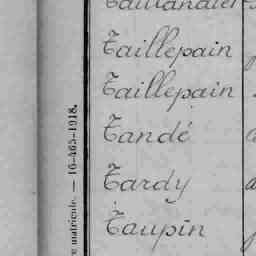 Taillandier
Taillepain
Taillepain
Tandé
Tardy
Taupin
re matricule. — 16-465-1918.